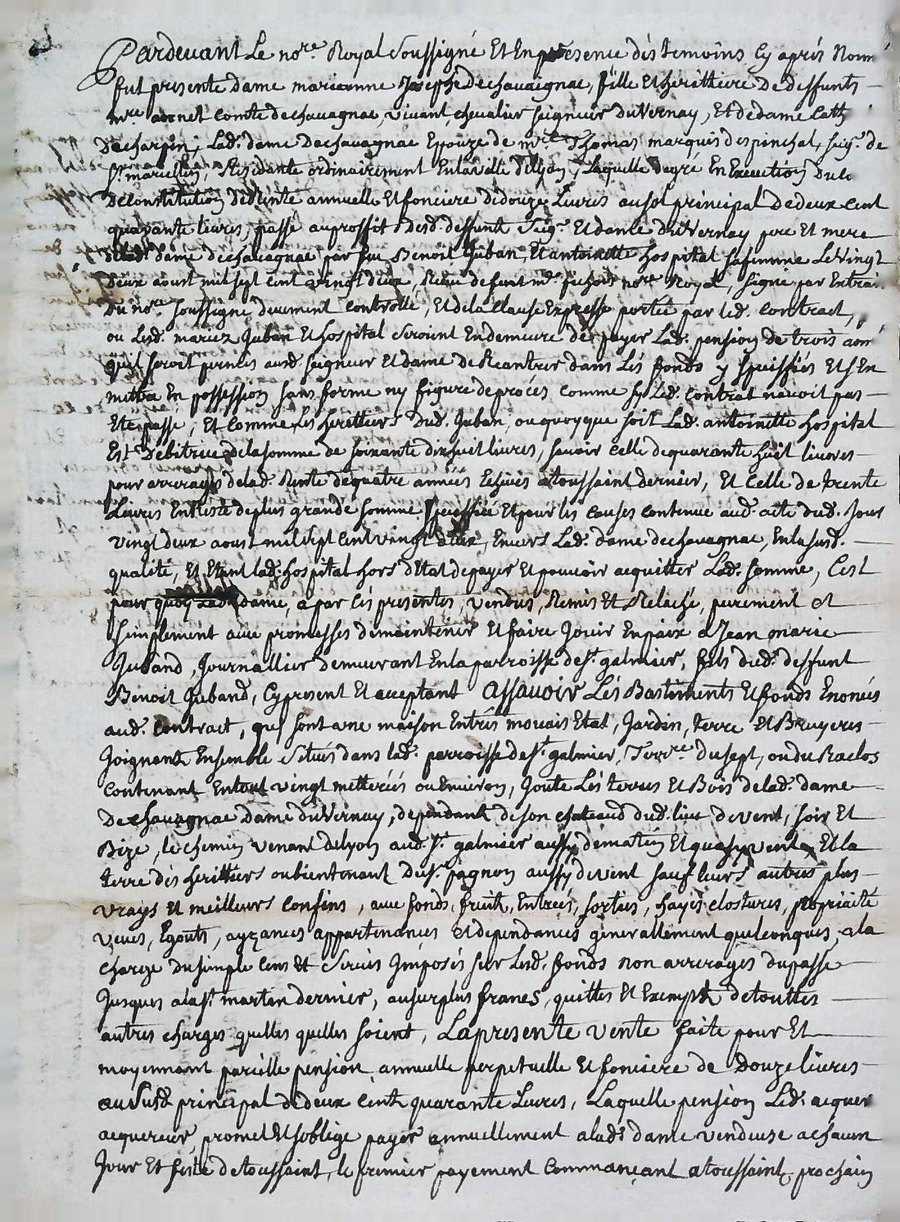 Pardevant Le no.re Royal Soussigné Et En presence dès temoins Cy aprés Nom
fut presente dame marianne Joseph Dechavaignac, fille Et herittiere De deffunts
m.re annet Comte dechavagnac, vivant, chevalier seigneur du Vernay, Et de dame Cath
Decharpin, Lad. dame Dechavagnac Epouze de m.re Thomas marquis despinchal, seig.r de
S.t marcellin, Residante ordinairement En la ville de lyon, Laquelle de gré En Execution du
De Constitution De Rente annuelle Et fonciere de douze Livres au sol principal De deux Cent
quarante livres, passé au proffit desd. deffunts Seig.r Et dame du Vernay pere Et mere
delad. dame dechavagnac par feu Benoit Juban, Et antoinette hospital sa femme Le Vingt
deux aoust mil sept Cent vingt deux, Reçu deffunt m.e no.re Royal signé par Extrai
du no.re soussigné deuement Controllé, Et de la Clause Expresse portée par led. Contract,
ou Lesd. mariez Juban Et hospital seroient En demeure de payer Lad. pension de trois ann
quil seroit permis aud. seigneur Et dame de Reantrer dans Lès fonds y speiffiés Et s'En
mettre En possession sans forme ny figure de procés Comme sy Led. Contrat navoit pas
Eté passé, Et Comme Les heritiers dud. Juban, ou quoyque soit Lad. antoinette hospital
Est Debitrice de la somme de soixante dix huit livres, savoir Celle de quarante huit livres
pour arrerages delad. Rente de quatre années Echues a toussaint dernier, Et Celle de trente
Livres En Reste de plus grande somme Et pour les Causes Contenue aud. acte dud. Jour
vingt deux aoust mil sept Cent vingt deux, Envers Lad. dame dechavagnac, En la susd.
qualité, Et Etant lad. hospital hors d'Etat de payer Et pouvoir acquitter Lad. somme, C'est
pour quoy Lad. dame, a par Cès presentes, vendus, Remis Et Relaché, purement Et
simplement avec promesses de maintenir Et faire Jouir En paix a Jean marie
Juband, Journallier demeurant En la parroisse de S.t galmier, fils dud. deffunt
Benoit Juband, Cy present Et acceptant Assavoir Lés Bastiments Et fonds Enoncés
aud. Contract, qui sont une maison En trés movais Etat, Jardin, terre Et Bruyeres
Joignant Ensemble Situés dans lad. parroisse de S.t galmier, Terr.re du sept, ou du Raclos
Contenant En tout vingt metterées ou Environ, Joute Lès terres Et Bois de lad. dame
Dechavagnac dame du Vernay, dependant de son chateaud dud. lieu de vent, soir Et
Bize, le chemin venant de lyon aud. S.t galmier aussy de matin Et quasy vent Et la
terre des heritiers ou bientenant de S.r pagnon aussy de vent sauf leurs autres plus
vrays Et meilleurs Confins, avec fonds, fruits, Entrées, sorties, hayes, clostures, propriaité
veues, Egouts, ayzances appartenances Et dependances generallement quelconques, a la
charge du simple Cens Et Servis Imposés sur Lesd. fonds non arrerages du passé
Jusques a la S.t martin dernier, au surplus francs, quittes Et Exempts de touttes
autres charges quelles quelles soient, La presente vente faite pour Et
moyennant pareille pension annuelle perpetuelle Et fonciere de Douze livres
au susd. principal de deux Cents quarante Livres, Laquelle pension Led. acquer
acquereur promet Et soblige payer annuellement a lad. dame vendeuse a chacun
Jour Et feste de toussaint, le premier payement Commançant a toussaint prochain